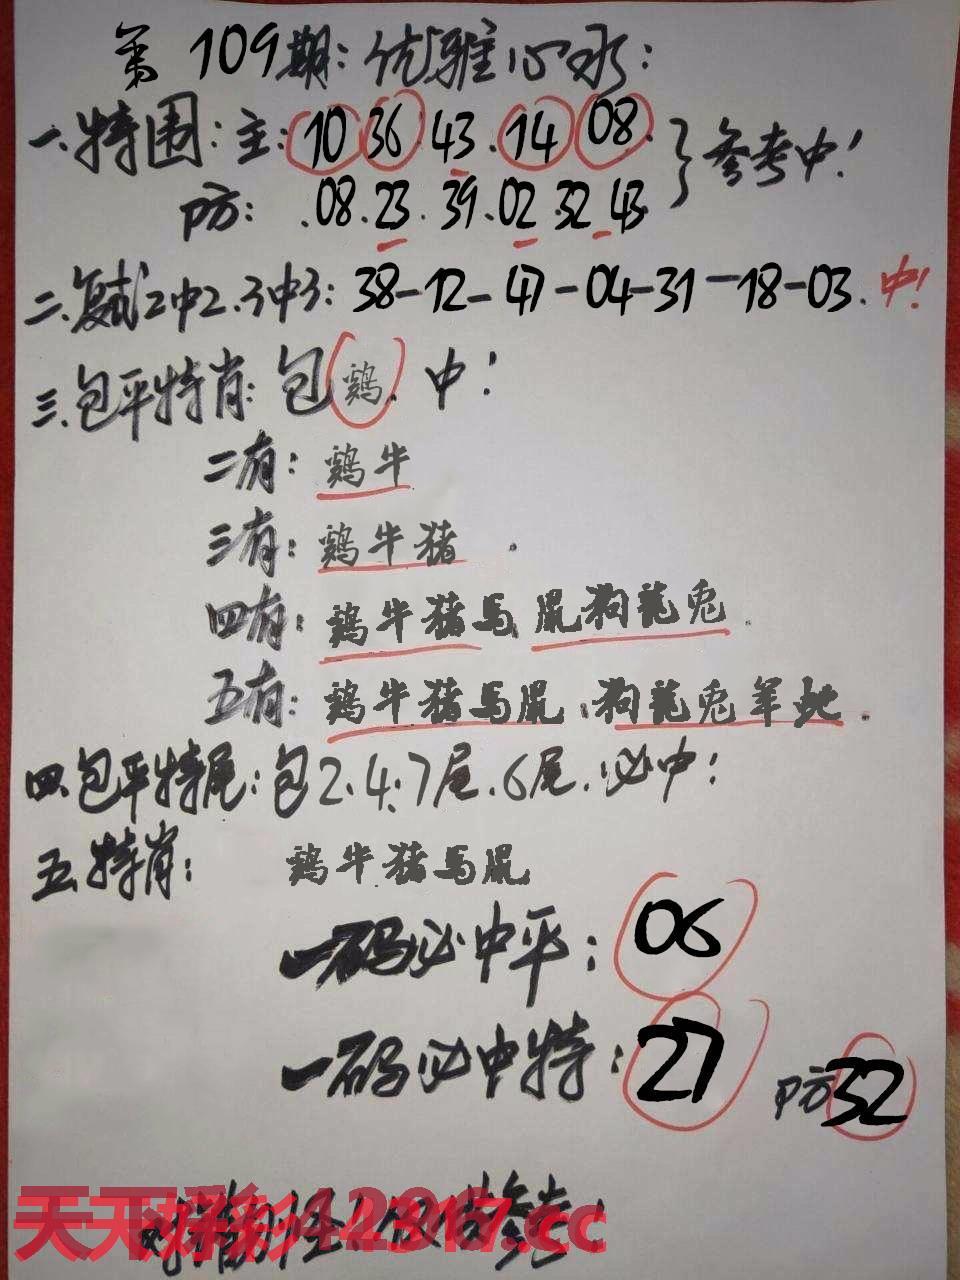 第109期:优雅心水:
一.特围:主:10 36 43.14 08.}参考中!
防:.08.23.39.02.32.43
二.复试2中2.3中3:38-12-47-04-31-18-03.中!
三.包平特肖:包鸡.中!
二有:鸡牛
三有:鸡牛猪.
四有:鸡牛猪马鼠狗龍兔.
五有:鸡牛猪马鼠狗龍兔羊蛇.
四.包平特尾:包2.4.7尾.6尾.必中!
五.特肖:鸡牛猪马鼠
一码必中平:06
一码必中特:27 防32